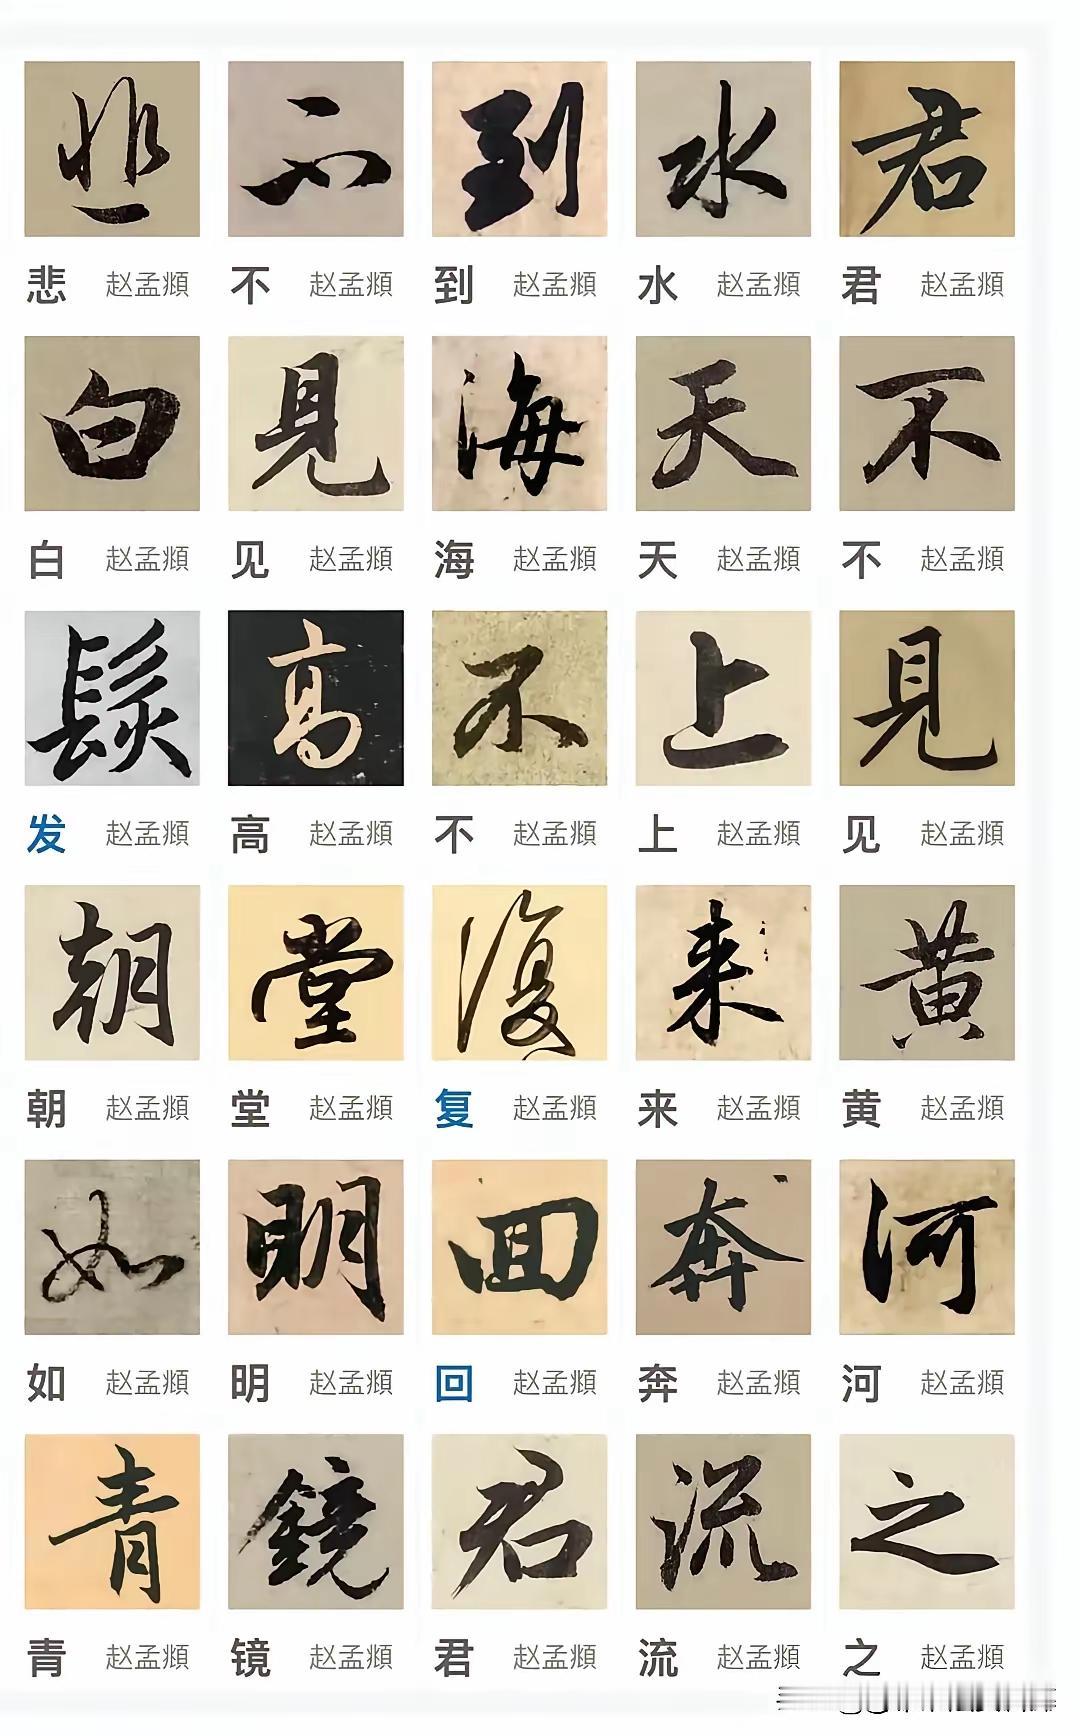 悲 不 到 水 君
悲 赵孟頫 不 赵孟頫 到 赵孟頫 水 赵孟頫 君 赵孟頫
白 見 海 天 不
白 赵孟頫 见 赵孟頫 海 赵孟頫 天 赵孟頫 不 赵孟頫
髮 高 不 上 見
发 赵孟頫 高 赵孟頫 不 赵孟頫 上 赵孟頫 见 赵孟頫
朝 堂 復 来 黄
朝 赵孟頫 堂 赵孟頫 复 赵孟頫 来 赵孟頫 黄 赵孟頫
如 明 回 奔 河
如 赵孟頫 明 赵孟頫 回 赵孟頫 奔 赵孟頫 河 赵孟頫
青 鏡 君 流 之
青 赵孟頫 镜 赵孟頫 君 赵孟頫 流 赵孟頫 之 赵孟頫